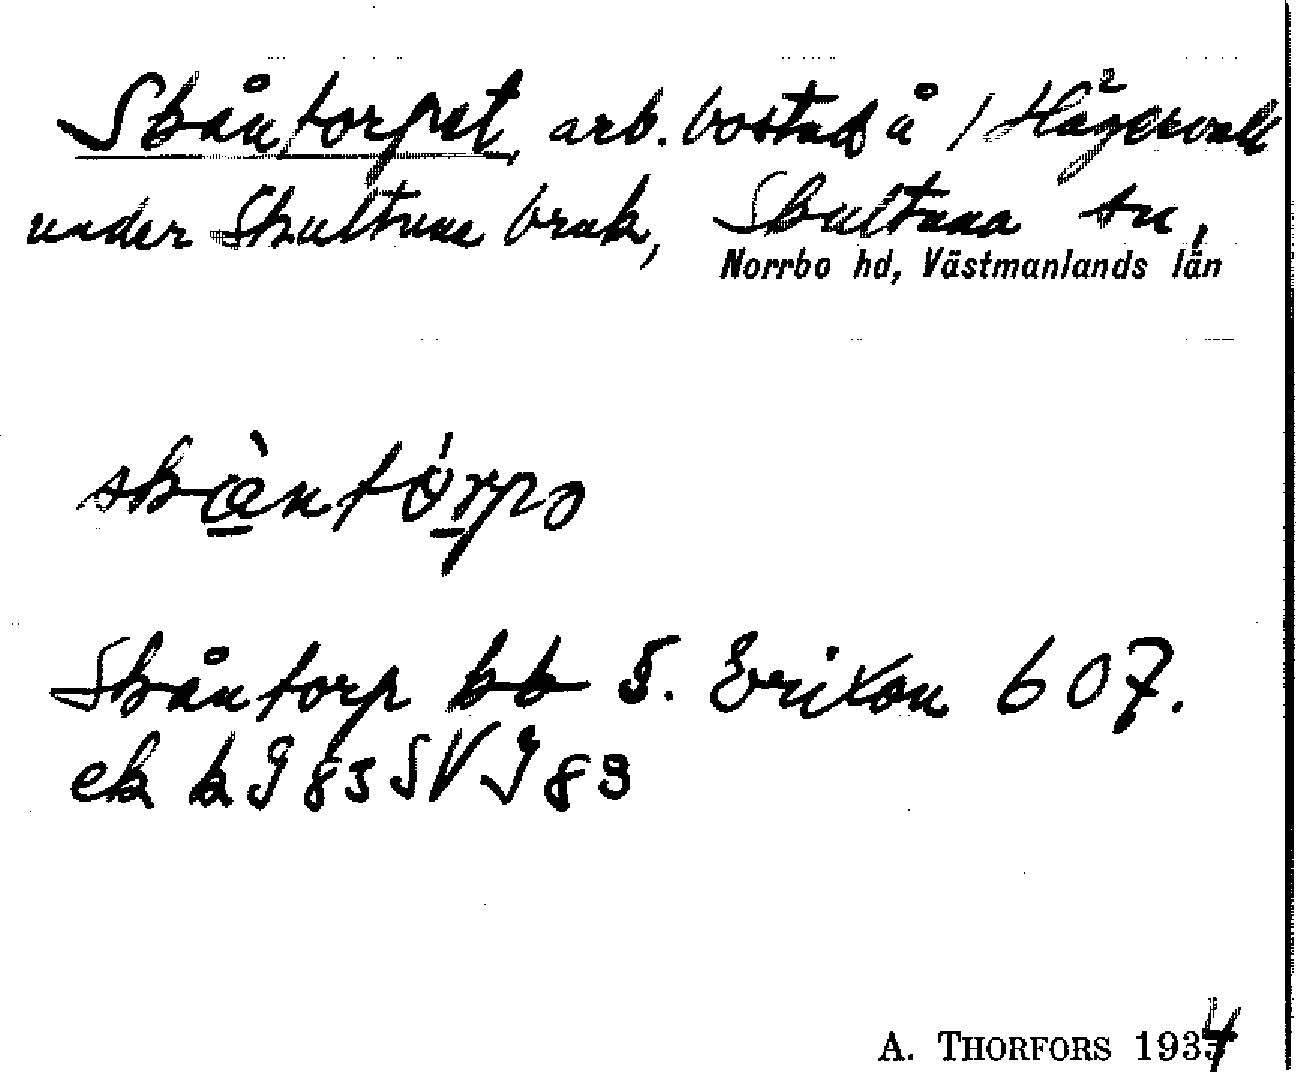 Skåntorpet, arb. bostad å / Hågervall
under Skultuna bruk, Skultuna sn,
Norrbo hd, Västmanlands län
skæ̀ntórpə
Skåntorp bb S. Erixon 607.
ek k I 83 SV I 83
A. THORFORS 1934